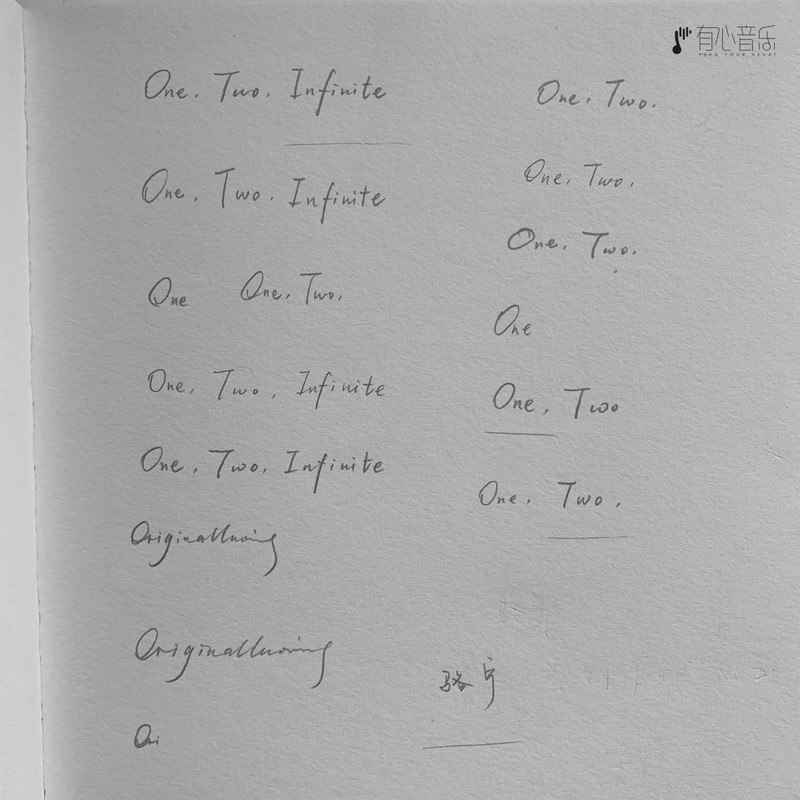 有心音乐
One. Two. Infinite
One. Two.
One, Two. Infinite
One, Two,
One One, Two,
One, Two.
One
One, Two, Infinite
One, Two
One, Two, Infinite
One, Two,
骆宇